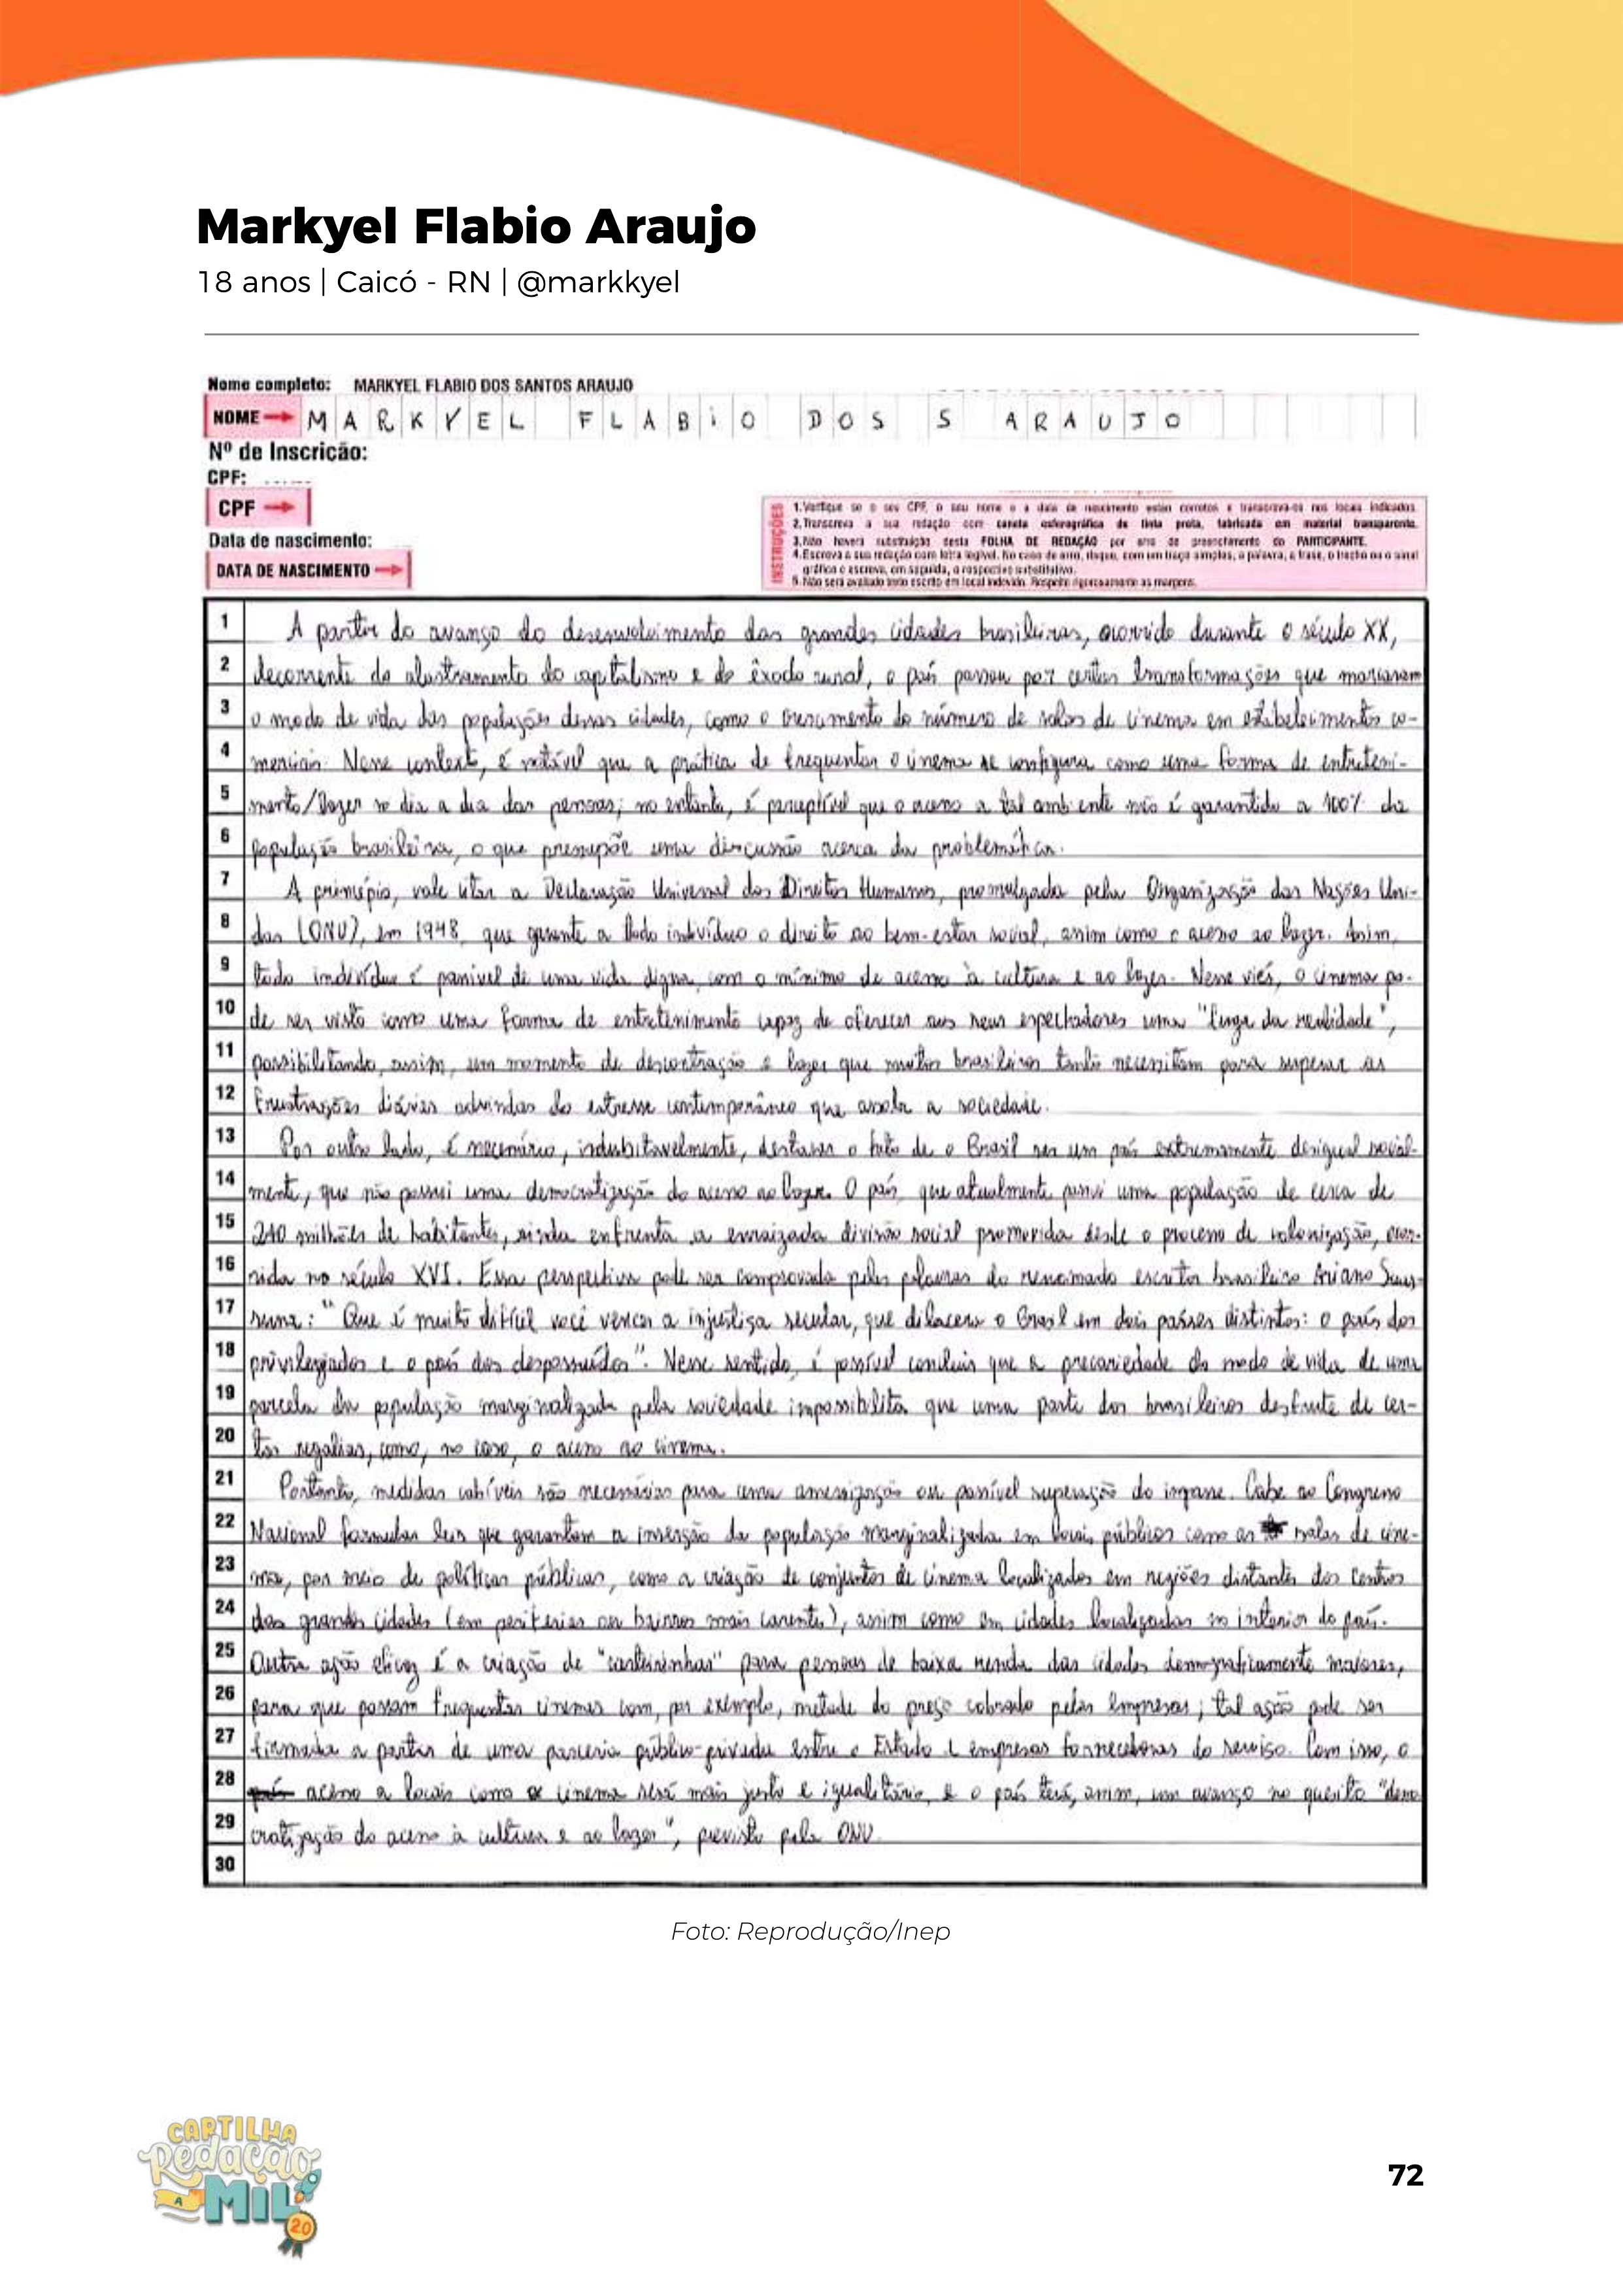 Markyel Flabio Araujo
18 anos | Caicó - RN | @markkyel
Nome completo: MARKYEL FLABIO DOS SANTOS ARAUJO
NOME MARKYEL FLABiO DOS S ARAUJO
Nº de Inscrição:
CPF:
CPF
Data de nascimento:
DATA DE NASCIMENTO
INSTRUÇÕES
1.Verifique se o seu CPF, o seu nome e a data de nascimento estão corretos e transcreva-os nos locais indicados.
2.Transcreva a sua redação com caneta esferográfica de tinta preta, fabricada em material transparente.
3.Não haverá substituição desta FOLHA DE REDAÇÃO por erro de preenchimento do PARTICIPANTE.
4.Escreva a sua redação com letra legível. No caso de erro, risque, com um traço simples, a palavra, a frase, o trecho ou o sinal
gráfico e escreva, em seguida, o respectivo substitutivo.
5.Não será avaliado texto escrito em local indevido. Respeite rigorosamente as margens.
1 A partir do avanço do desenvolvimento das grandes cidades brasileiras, ocorrido durante o século XX,
2 decorrente do alastramento do capitalismo e do êxodo rural, o país passou por certas transformações que marcaram
3 o modo de vida das populações dessas cidades, como o crescimento do número de salas de cinema em estabelecimentos co-
4 merciais. Nesse context, é notável que a prática de frequentar o cinema se configura como uma forma de entreteni-
5 mento/lazer no dia a dia das pessoas; no entanto, é perceptível que o acesso a tal ambiente não é garantido a 100% da
6 população brasileira, o que pressupõe uma discussão acerca da problemática.
7 A princípio, vale citar a Declaração Universal dos Direitos Humanos, promulgada pela Organização das Nações Uni-
8 das (ONU), em 1948, que garante a todo indivíduo o direito ao bem-estar social, assim como o acesso ao lazer. Assim,
9 todo indivíduo é passível de uma vida digna, com o mínimo de acesso à cultura e ao lazer. Nesse viés, o cinema po-
10 de ser visto como uma forma de entretenimento capaz de oferecer aos seus espectadores uma "fuga da realidade",
11 possibilitando, assim, um momento de descontração e lazer que muitos brasileiros tanto necessitam para superar as
12 frustrações diárias advindas do estresse contemporâneo que assola a sociedade.
13 Por outro lado, é necessário, indubitavelmente, destacar o fato de o Brasil ser um país extremamente desigual social-
14 mente, que não possui uma democratização do acesso ao lazer. O país, que atualmente possui uma população de cerca de
15 210 milhões de habitantes, ainda enfrenta a enraizada divisão social promovida desde o processo de colonização, ocor-
16 rida no século XVI. Essa perspectiva pode ser comprovada pelas palavras do renomado escritor brasileiro Ariano Suas-
17 suna: "Que é muito difícil você vencer a injustiça secular, que dilacera o Brasil em dois países distintos: o país dos
18 privilegiados e o país dos despossuídos". Nesse sentido, é possível concluir que a precariedade do modo de vida de uma
19 parcela da população marginalizada pela sociedade impossibilita que uma parte dos brasileiros desfrute de cer-
20 tas regalias, como, no caso, o acesso ao cinema.
21 Portanto, medidas cabíveis são necessárias para uma amenização ou possível superação do impasse. Cabe ao Congresso
22 Nacional formular leis que garantam a inserção da população marginalizada em locais públicos como as salas de cine-
23 ma, por meio de políticas públicas, como a criação de conjuntos de cinema localizados em regiões distantes dos centros
24 das grandes cidades (em periferias ou bairros mais carentes), assim como em cidades localizadas no interior do país.
25 Outra ação eficaz é a criação de "carteirinhas" para pessoas de baixa renda das cidades demograficamente maiores,
26 para que possam frequentar cinemas com, por exemplo, metade do preço cobrado pelas empresas; tal ação pode ser
27 firmada a partir de uma parceria público-privada entre o Estado e empresas fornecedoras do serviço. Com isso, o
28 acesso a locais como o cinema será mais justo e igualitário, e o país terá, assim, um avanço no quesito "demo
29 cratização do acesso à cultura e ao lazer", previsto pela ONU.
30
Foto: Reprodução/Inep
CARTILHA
Redação
A MIL
20
72